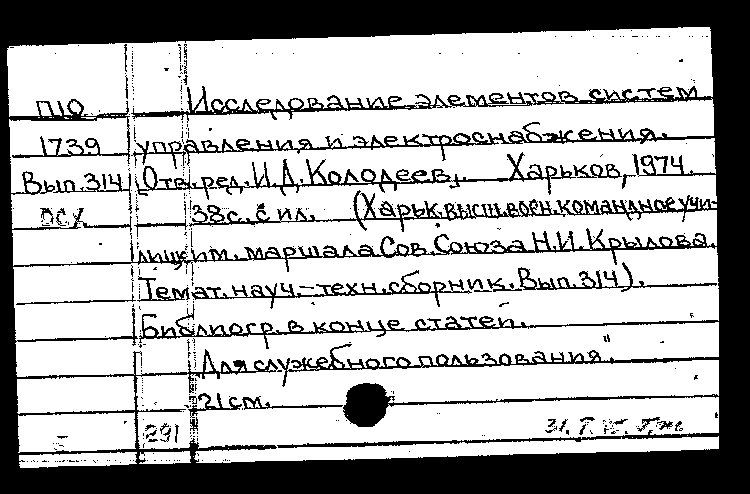 П10 Исследование элементов систем
1739 управления и электроснабжения.
Вып.314 [Отв. ред. И.Д. Колодеев]. Харьков, 1974.
ОСХ 38 с. с ил. (Харьк. высш. воен. командное учи-
лище им. маршала Сов. Союза Н.И. Крылова.
Темат. науч.-техн. сборник. Вып. 314).
Библиогр. в конце статей.
„Для служебного пользования".
21 см.
291